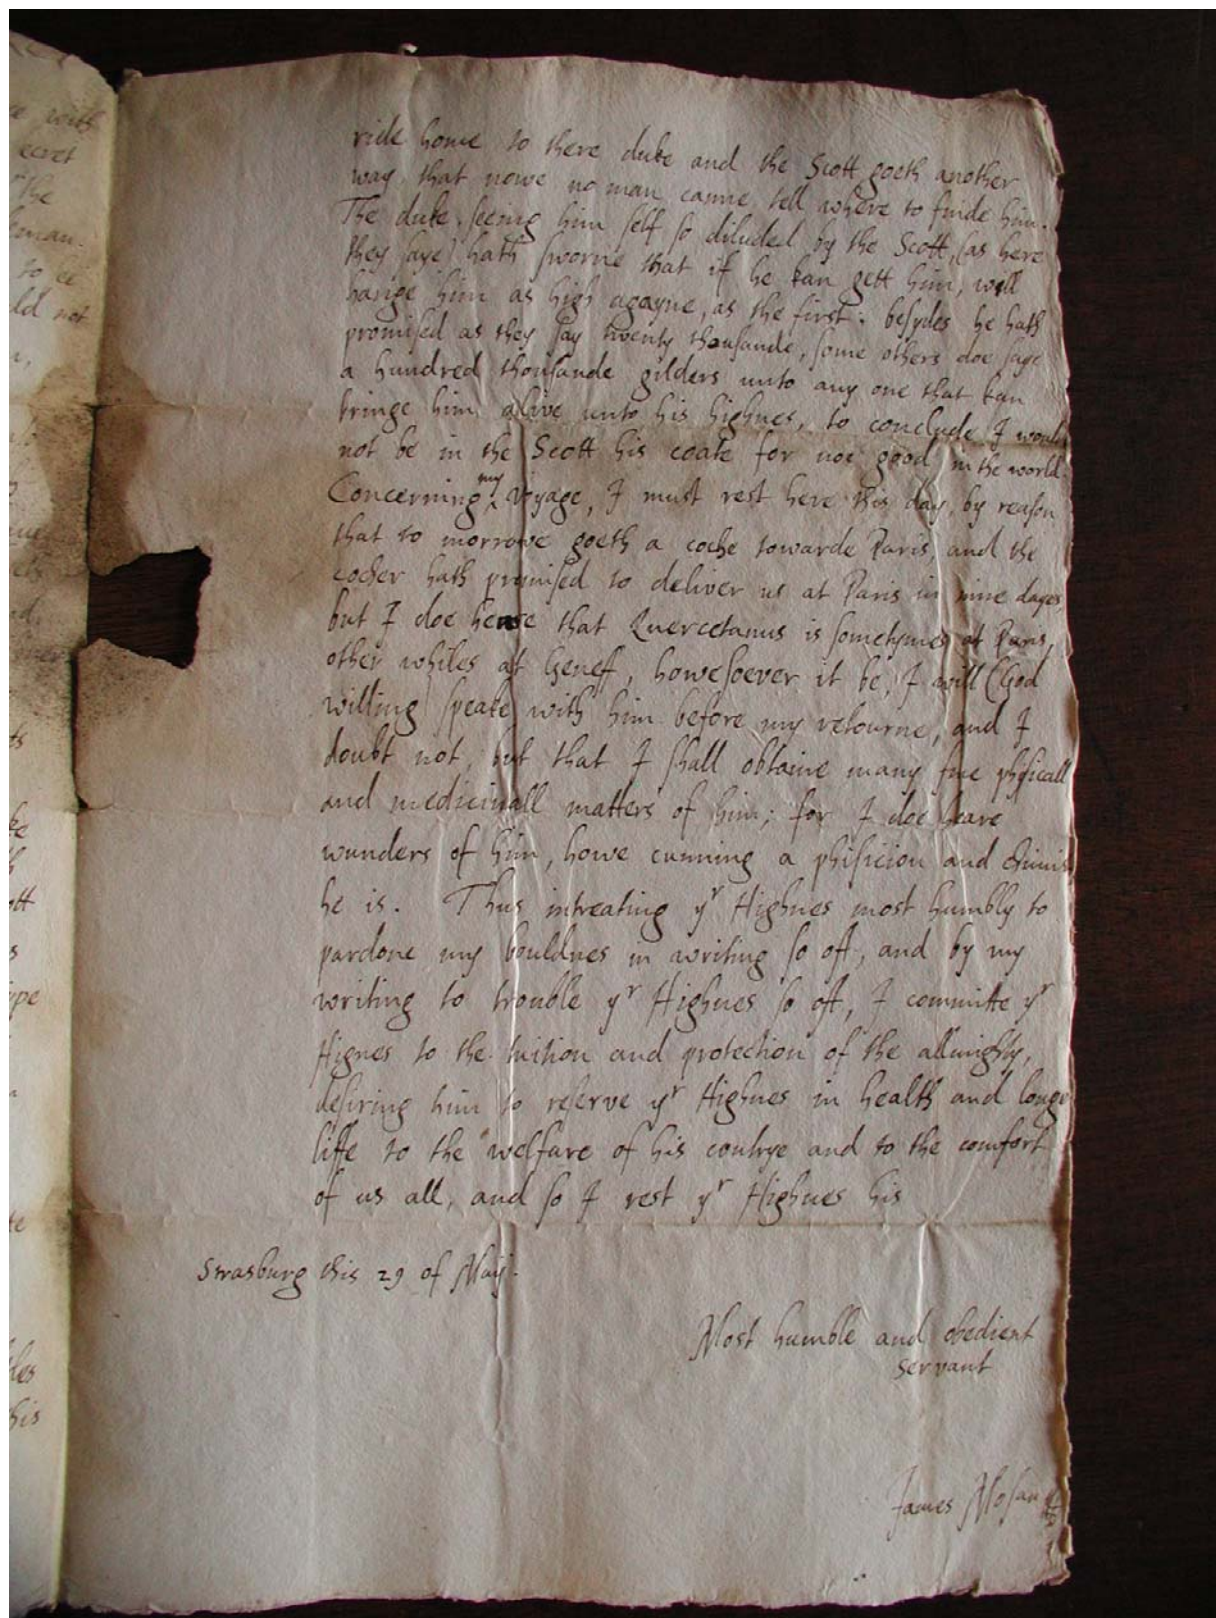 e with
ecret
the
eman.
to ee
ld not
ride home to there duke and the Scott goeth another
way, that nowe no man canne tell where to finde him.
The duke, seeing him self so diluded by the Scott, (as here
they saye) hath sworne that if he kan gett him, will
hange him as high agayne, as the first: besydes he hath
promised as they say twenty thousande, some others doe saye
a hundred thousande gilders unto any one that kan
bringe him alive unto his highnes, to conclude I would
not be in the Scott his coate for noe good in the world.
Concerning my voyage, I must rest here this day, by reason
that to morrowe goeth a coche towarde Paris, and the
cocher hath promised to deliver us at Paris in nine dayes,
but I doe heare that Quercetanus is sometymes at Paris,
other whiles at Geneff, howesoever it be, I will (God
willing) speake with him before my retourne, and I
doubt not, but that I shall obtaine many fine phisicall
and medicinall matters of him; for I doe heare
wunders of him, howe cunning a phisicion and chimist
he is. Thus intreating yr Highnes most humbly to
pardone my bouldnes in writing so oft, and by my
writing to trouble yr Highnes so oft, I committe yr
Hignes to the tuition and protection of the allmighty,
desiring him to reserve yr Highnes in health and longe
liffe to the welfare of his contrye and to the comfort
of us all, and so I rest yr Highnes his
Strasburg this 29 of Maij.
Most humble and obedient
servant
James Mosan